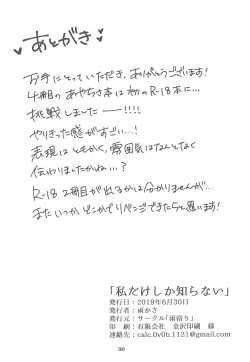 あとがき
お手にとっていただき、ありがとうございます!
4冊目のあやちさ本は初のR-18本に…
挑戦しました――!!!!
やりきった感がすごい…!
表現はともかく、雰囲気はなんとなく
伝わりましたかね…?
R-18 2冊目が出れるかは分かりませんが…
またいつかどこかでリベンジできたらと思います!
「私だけしか知らない」
発行日:2019年6月30日
発行者:雨かさ
発行元:サークル「雨宿り」
印 刷:有限会社 金沢印刷 様
連絡先:calc.0v0b.1121@gmail.com
30